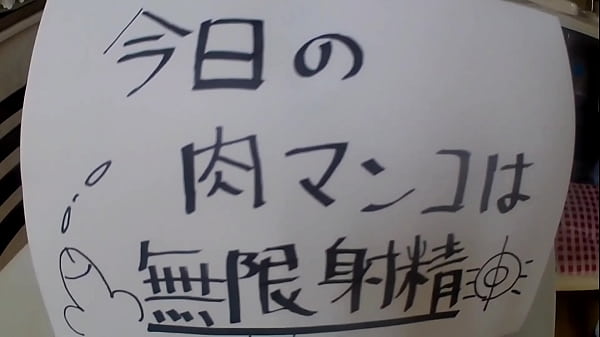 今日の
肉マンコは
無限射精